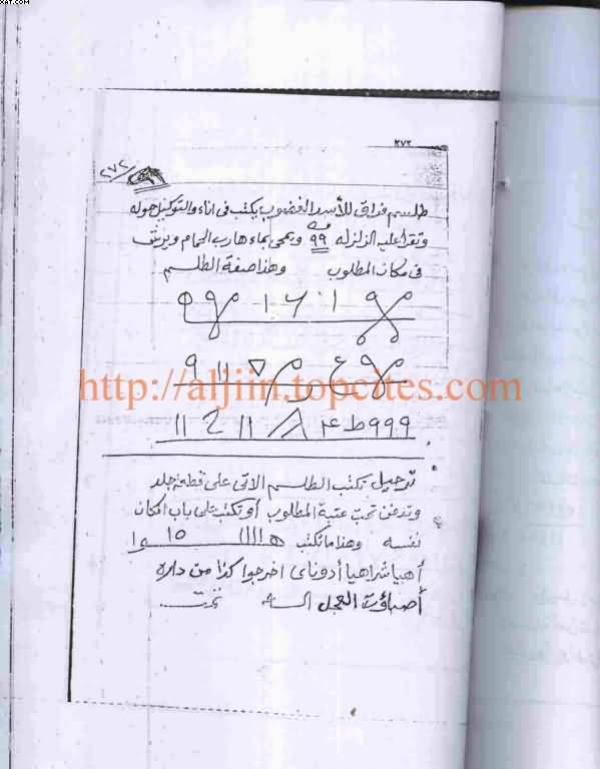 XAT.COM
٢٧٢
٢٧٢
طلسم فراق للأسد الغضوب يكتب فى اناء والتوكيل حوله
وتقرأ عليه الزلزله ٩٩ ويمحى بماء هارب الحمام ويرش
فى مكان المطلوب وهذا صفة الطلسم
http://aljiin.topcites.com
ترحيل تكتب الطلسم الاتى على قطعة جلد
وتدفن تحت عتبة المطلوب أو تكتب على باب المكان
نفسه وهذا ما تكتب
أهيا شراهيا أدوناى اخرجوا كذا من داره
أصباؤت العجل تمت